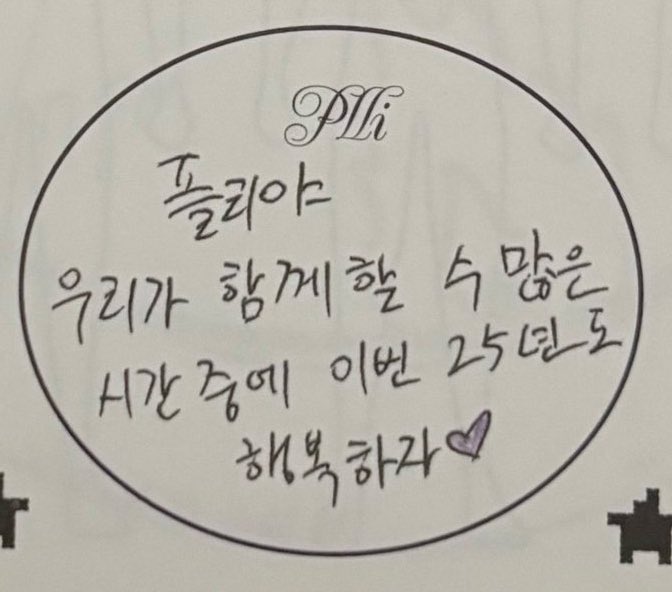 PLLi
플리야
우리가 함께할 수 많은
시간 중에 이번 25년도
행복하자♥